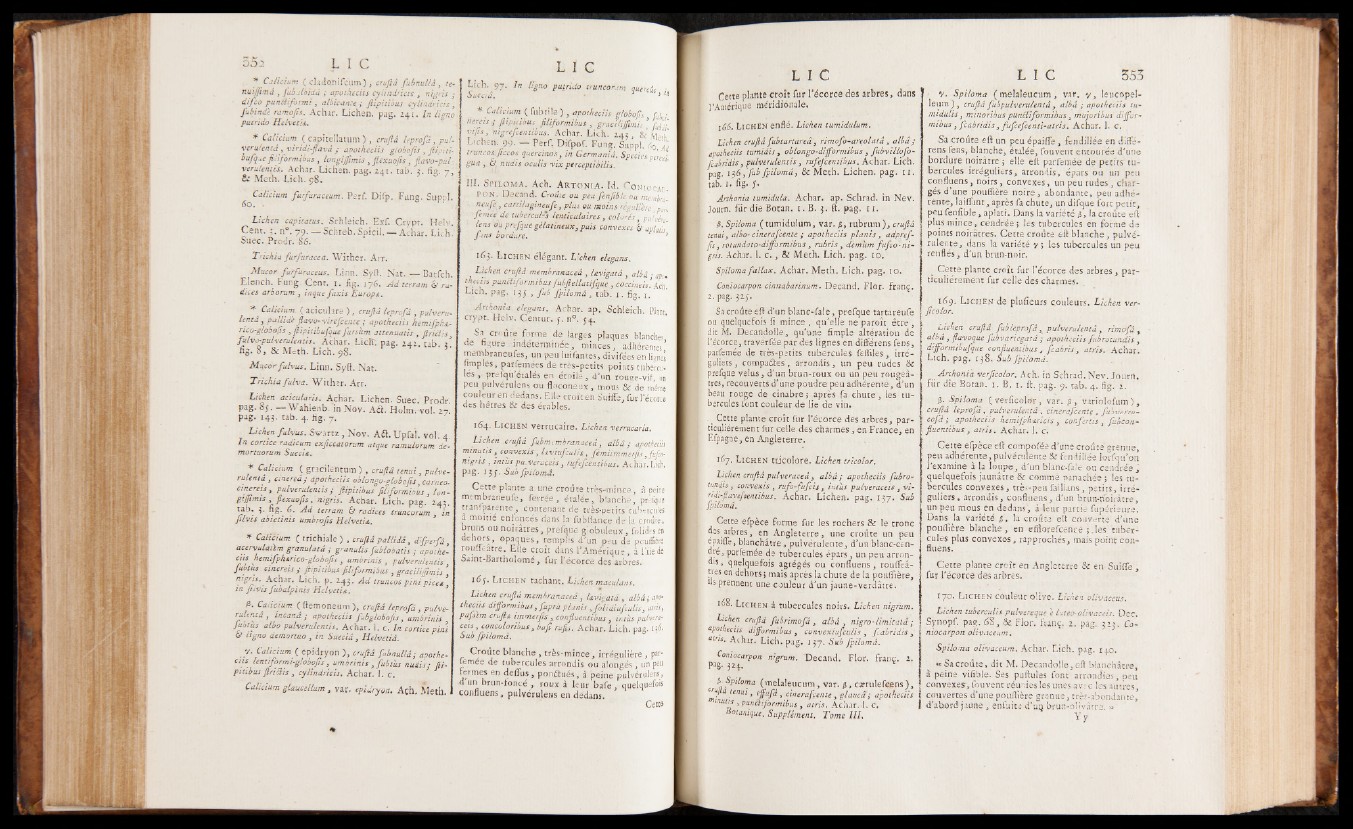 352 L I C
* Calicium ( cladoniscum ), crustâ subnullâ, te-
nuissimâ, ; apotheciis cylindricis, nigris ;
disco punctiformi, albicante ; stipitibus cylindricis,
subindè ramosis. Achar. Lichen. pag. 241. In ligno
putrido Helvetiæ.
* Calicium ( capitellatum ), crustâ leprosâ, pul-
verulentâ, viridi-flavâ ; apotheciis globosis, stipiti-
busque filiformibus, longissimis, flexuosis, flavo-pul-
verulentis. Achar. Lichen. pag. 241. tab. 3. fig. 7,
& Meth. Lich. 98.
Calicium furfuraceum. Pers. Disp. Fung. Suppl.
60.
Lichen capitatus. Schleich. Exs. Crypt. Helv.
Cent. 1. n°. 79. — Schreb. Spicil. — Achar. Lich.
Suec. Prodr. 86.
Trichia furfuracea. Wither. Arr.
Mucor furfuraceus. Linn. Syst. Nat. — Batsch.
Elench. Fung. Cent. 1. fig. 176. Ad terram & ra-
dices arborum, inque saxis Europæ.
* Calicium ( aciculare ), crustâ leprosâ, pulveru-
lentâ, pallidè flavo-virescente ; apotheciis hemisphæ-
rico-globosis, stipitibusque sursùm attenuatis, strictis,
fulvo-pulverulentis. Achar. Lich. pag. 242. tab. 3.
fig. 8, & Meth. Lich. 98.
Mucor fulvus. Linn. Syst. Nat.
Trichia fulva. Wither. Arr.
Lichen acicularis. Achar. Lichen. Suec. Prodr.
pag. 85. — Wahlenb. in Nov. Act. Holm. vol. 27.
pag. 143. tab. 4. fig. 7.
Lichen fulvus. Swartz, Nov. Act. Upsal. vol. 4.
In cortice radicum exsiccatorum atque ramulorum de-
mortuorum Sueciæ.
* Calicium ( gracilentum ), crustâ tenui, pulve-
rulentâ, cinereâ ; apotheciis oblongo-globosis, carneo-
cinereis, pulverulentis ; stipitibus filiformibus, lon-
gissimis, flexuosis, nigris. Achar. Lich. pag. 243.
tab. 3. fig. 6. Ad terram & radices truncorum, in
silvis abietinis umbrosis Helvetiæ.
* Calicium ( trichiale ), crustâ pallidâ, dispersâ,
acervulatìm granulatâ ; granulis sublobatis ; apothe-
ciis hemisphærico-globosis, umbrinis, pulverulentis,
subtùs cinereis ; stipitibus filiformibus, gracilissimis,
nigris. Achar. Lich. p. 243. Ad truncos pini piceæ,
in silvis subalpinis Helvetiæ.
β. Calicium ( stemoneum ), crustâ leprosâ, pulve-
rulentâ, incanâ ; apotheciis subglobosis, umbrinis,
subtùs albo pulverulentis. Achar. l. c. In cortice pini
& ligno demortuo, in Sueciâ, Helvetiâ.
γ. Calicium ( epidryon ), crustâ subnullâ ; apothe-
ciis lentiformi-globosis, umbrinis, subtùs nudis ; sti-
pitibus strictis, cylindricis. Achar. l. c.
Calicium glaucellum, var. epidryon. Ach. Meth.
L I C
Lich. 97. In ligno putrido truncorum quercûs, in
Sueciâ.
* Calicium ( subtile ), apotheciis globosis,
nereis ; stipitibus filiformibus, gracilissimis,
nigrescentibus. Achar. Lich. 243, & Meth.
Lichen. 99. — Pers. Disposs. Fung. Suppl. 60. Ad
truncos siccos quercinos, in Germaniâ. Species
, & nudis oculis vix perceptibilis.
III. SPILOMA. Ach. ARTONIA. Id. CONIOCAR-
PON. Decand. Croûte ou peu sensible ou membra-
neuse, cartilagineuse, plus ou moins régulière, par-
semée de tubercules lenticulaires, colorés, pulvéru-
lens ou presque gélatineux, puis convexes & aplatis,
sans bordure.
163. LICHEN élégant. Lichen elegans.
Lichen crustâ membranaceâ, lævigatâ, albâ ; apo-
theciis punctiformibus substellatisque, coccineis. Ach.
Lich. pag. 135, sub spilomâ, tab. 1. fig. 1.
Arthonia elegans. Achar. ap. Schleich. Plant.
crypt. Helv. Centur. 5. n°. 54.
Sa croûte forme de larges plaques blanches,
de figure indéterminée, minces, adhérentes,
membraneuses, un peu luisantes, divisées en lignes
simples, parsemées de très-petits points tubercu-
lés, presqu'étalés en étoile, d'un rouge-vif, un
peu pulvérulens ou floconeux, mous & de même
couleur en dedans. Elle croît en Suisse, sur l'écorce
des hêtres & des érables.
164. LICHEN verrucaire. Lichen verrucaria.
Lichen crustâ submembranaceâ, albâ ; apotheciis
minutis, convexis, læviusculis, semiimmersis, fusco-
nigris, intùs pulveraceis, rufescentibus. Achar. Lich.
pag. 135. Sub spilomâ.
Cette plante a une croûte très-mince, à peine
membraneuse, serrée, étalée, blanche, presque
transparente, contenant de très-petits tubercules
à moitié enfoncés dans la substance de la croûte,
bruns ou noirâtres, presque globuleux, solides en
dehors, opaques, remplis d'un peu de poussière
roussâtre. Elle croît dans l'Amérique, à l'île de
Saint-Bartholomé, sur l'écorce des arbres.
165. LICHEN tachant. Lichen maculans.
Lichen crustâ membranaceâ, lævigatâ, albâ ; apo-
theciis difformibus, suprà planis, , atris,
passìm crustæ immersis, confluentibus, intùs pulvera-
ceis, concoloribus, basi rufis. Achar. Lich. pag. 136.
Sub spilomâ.
Croûte blanche, très-mince, irrégulière, par-
semée de tubercules arrondis ou alongés, un peu
fermes en dessus, ponctués, à peine pulvérulens,
d'un brun-foncé, roux à leur base, quelquefois
confluens, pulvérulens en dedans.
Cette
L I C
Cette plante croît sur l'écorce des arbres, dans
l'Amérique méridionale.
166. LICHEN enflé. Lichen tumidulum.
Lichen crustâ subtartareâ, rimoso-areolatâ, albâ ;
apotheciis tumidis, oblongo-difformibus, subvilloso-
scabridis, pulverulentis, rufescentibus. Achar. Lich.
pag. 136, sub spilomâ, & Meth. Lichen. pag. 11.
tab. 1. fig. 5.
Arthonia tumidula. Achar. ap. Schrad. in Nev.
Journ. für die Botan. 1. B. 3. st. pag. 11.
β. Spiloma ( tumidulum, var. β, rubrum ), crustâ
tenui, albo-cinerascente ; apotheciis planis, adpres-
sis, rotundato-difformibus, rubris, demùm fusco-ni-
gris. Achar. l. c., & Meth. Lich. pag. 10.
Spiloma fallax. Achar. Meth. Lich. pag. 10.
Coniocarpon cinnabarinum. Decand. Flor. franç.
2. pag. 323.
Sa croûte est d'un blanc-sale, presque tartareuse
ou quelquefois si mince, qu'elle ne paroît être,
dit M. Decandolle, qu'une simple altération de
l'écorce, traversée par des lignes en différens sens,
parsemée de très-petits tubercules sessiles, irré-
guliers, compactes, arrondis, un peu rudes &
presque velus, d'un brun-roux ou un peu rougeâ-
tres, recouverts d'une poudre peu adhérente, d'un
beau rouge de cinabre ; après sa chute, les tu-
bercules sont couleur de lie de vin.
Cette plante croît sur l'écorce des arbres, par-
ticulièrement sur celle des charmes, en France, en
Espagne, en Angleterre.
167. LICHEN tricolore. Lichen tricolor.
Lichen crustâ pulvereaceâ, albâ ; apotheciis subro-
tundis, convexis, rufo-fuscis, intùs pulveraceis, vi-
ridi-flavescentibus. Achar. Lichen. pag. 137. Sub
spilomâ.
Cette espèce forme sur les rochers & le tronc
des arbres, en Angleterre, une croûte un peu
épaisse, blanchâtre, pulvérulente, d'un blanc-cen-
dré, parsemée de tubercules épars, un peu arron-
dis, quelquefois agrégés ou confluens, roussâ-
tres en dehors ; mais après la chute de la poussière,
ils prennent une couleur d'un jaune-verdâtre.
168. LICHEN à tubercules noirs. Lichen nigrum.
Lichen crustâ subrimosâ, albâ, nigro-limitatâ ;
apotheciis difformibus, convexiusculis, scabridis,
atris. Achar. Lich. pag. 137. Sub spilomâ.
Coniocarpon nigrum. Decand. Flor. franç. 2.
pag. 324.
β. Spiloma ( melaleucum, var. β, cærulescens ),
crustâ tenui, effusâ, cinerascente, glaucâ ; apotheciis
minutis, punctiformibus, atris. Achar. l. c.
Botanique. Supplément. Tome III.
L I C 353
γ. Spiloma ( melaleucum, var. γ, leucopel-
leum ), crustâ subpulverulentâ, albâ ; apotheciis tu-
midulis, minoribus punctiformibus, majoribus diffor-
mibus, scabridis, fuscescenti-atris. Achar. l. c.
Sa croûte est un peu épaisse, fendillée en diffé-
rens sens, blanche, étalée, souvent entourée d'une
bordure noirâtre ; elle est parsemée de petits tu-
bercules irréguliers, arrondis, épars ou un peu
confluens, noirs, convexes, un peu rudes, char-
gés d'une poussière noire, abondante, peu adhé-
rente, laissant, après sa chute, un disque fort petit,
peu sensible, aplati. Dans la variété β, la croûte est
plus mince, cendrée ; les tubercules en forme de
points noirâtres. Cette croûte est blanche, pulvé-
rulente, dans la variété γ ; les tubercules un peu
renflés, d'un brun-noir.
Cette plante croît sur l'écorce des arbres, par-
ticulièrement sur celle des charmes.
169. LICHEN de plusieurs couleurs. Lichen ver-
sicolor.
Lichen crustâ subleprosâ, pulverulentâ, rimosâ,
albâ, flavoque subvariegatâ ; apotheciis subrotundis,
difformibusque confluentibus, scabris, atris. Achar.
Lich. pag. 138. Sub spilomâ.
Arthonia versicolor. Ach. in Schrad. Nev. Journ.
für die Botan. 1. B. 1. st. pag. 9. tab. 4. fig. 2.
β. Spiloma ( versicolor, var. β, variolosum ),
crustâ leprosâ, pulverulentâ, cinerascente,
; apotheciis hemisphæricis, confertis, subcon-
fluentibus, atris. Achar. l. c.
Cette espèce est composée d'une croûte grenue,
peu adhérente, pulvérulente & fendillée lorsqu'on
l'examine à la loupe, d'un blanc-sale ou cendrée,
quelquefois jaunâtre & comme panachée ; les tu-
bercules convexes, très-peu saillans, petits, irré-
guliers, arrondis, confluens, d'un brun-noirâtre,
un peu mous en dedans, à leur partie supérieure.
Dans la variété β, la croûte est couverte d'une
poussière blanche, en efflorescence ; les tuber-
cules plus convexes, rapprochés, mais point con-
fluens.
Cette plante croît en Angleterre & en Suisse,
sur l'écorce des arbres.
170. LICHEN couleur olive. Lichen olivaceus.
Lichen tuberculis pulvereque è luteo-olivaceis. Dec.
Synops. pag. 68, & Flor. franç. 2. pag. 323. Co-
niocarpon olivaceum.
Spiloma olivaceum. Achar. Lich. pag. 140.
« Sa croûte, dit M. Decandolle, est blanchâtre,
à peine visible. Ses pustules sont arrondies, peu
convexes, souvent réunies les unes avec les autres,
couvertes d'une poussière grenue, très-abondante,
d'abord jaune, ensuite d'un brun-olivâtre. »
Y y